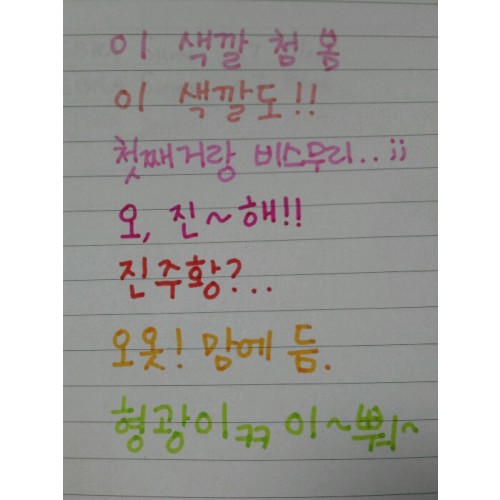 이 색깔 첨 봄
이 색깔도!!
첫째거랑 비스무리..;;
오, 진~해!!
진주황?..
오옷! 맘에 듬.
형광이ㅋㅋ 이~뻐~